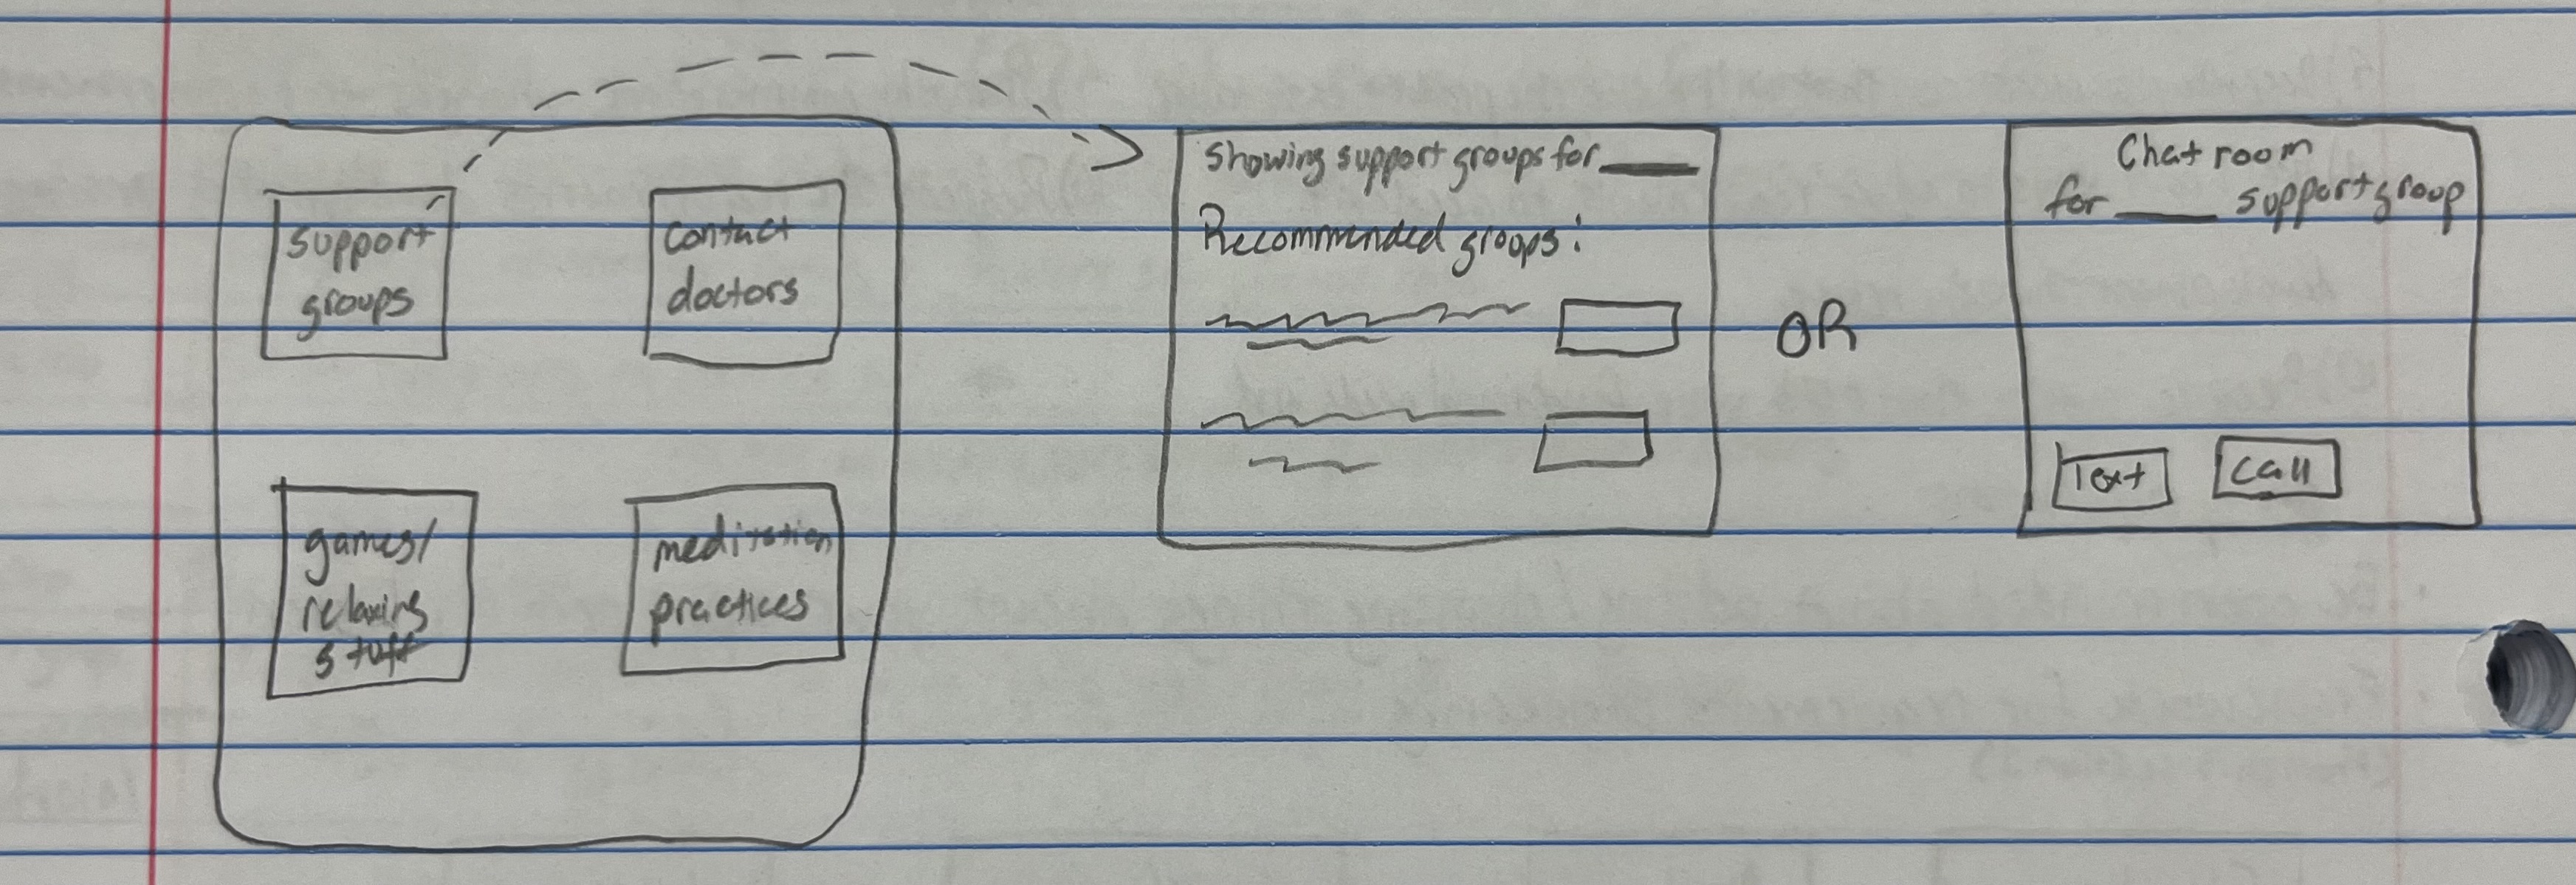 support
groups
contact
doctors
games/
relaxing
stuff
meditation
practices
Showing support groups for ____
Recommended groups:
OR
Chat room
for ____ support group
Text
Call